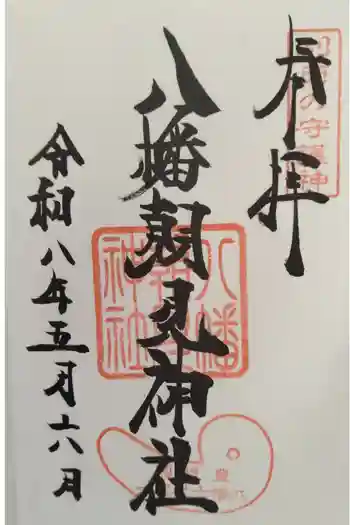 別府の守護神
奉拝
八幡朝見神社
八幡朝見神社
令和八年五月六日